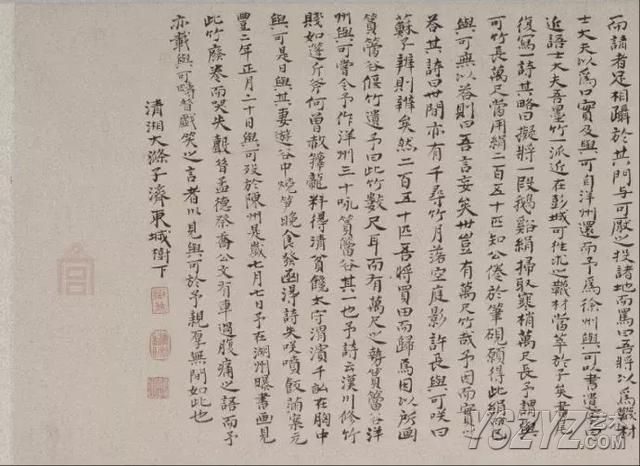 而請者足相躡於其門与可厭之投諸地而罵曰吾將以為韈材
士大夫以為口實及與可自洋州還而予為徐州與可以書遺余曰
近語士大夫吾墨竹一派近在彭城可往求之韈材當萃於子矣書尾
復寫詩其略曰擬將一段鵝谿絹掃取寒梢萬尺長予謂與
可竹長萬尺當用絹二百五十匹知公倦於筆硯願得此絹而已
與可無以答則曰吾言妄矣世豈有萬尺竹哉予因而實之
答其詩曰世間亦有千尋竹月落空庭影許長與可咲曰
蘇子辨則辨矣然二百五十匹吾將買田而歸焉因以所画
篔簹谷偃竹遺予曰此竹數尺耳而有萬尺之勢篔簹谷洋
州與可嘗令予作洋州三十咏篔簹谷其一也予詩云漢川修竹
賤如蓬斤斧何曾赦籜龍料得清貧饞太守渭濱千畝在胸中
與可是日與其妻遊谷中燒笋晚食發函得詩失咲噴飯滿案元
豐二年正月二十日與可歿於陳州是歲七月七日予在湖州曝書画見
此竹廢卷而哭失聲昔孟德祭喬公文有車過腹痛之語而予
亦載與可疇昔戲笑之言者以見與可於予親厚無間如此也
清湘大滌子濟東城樹下